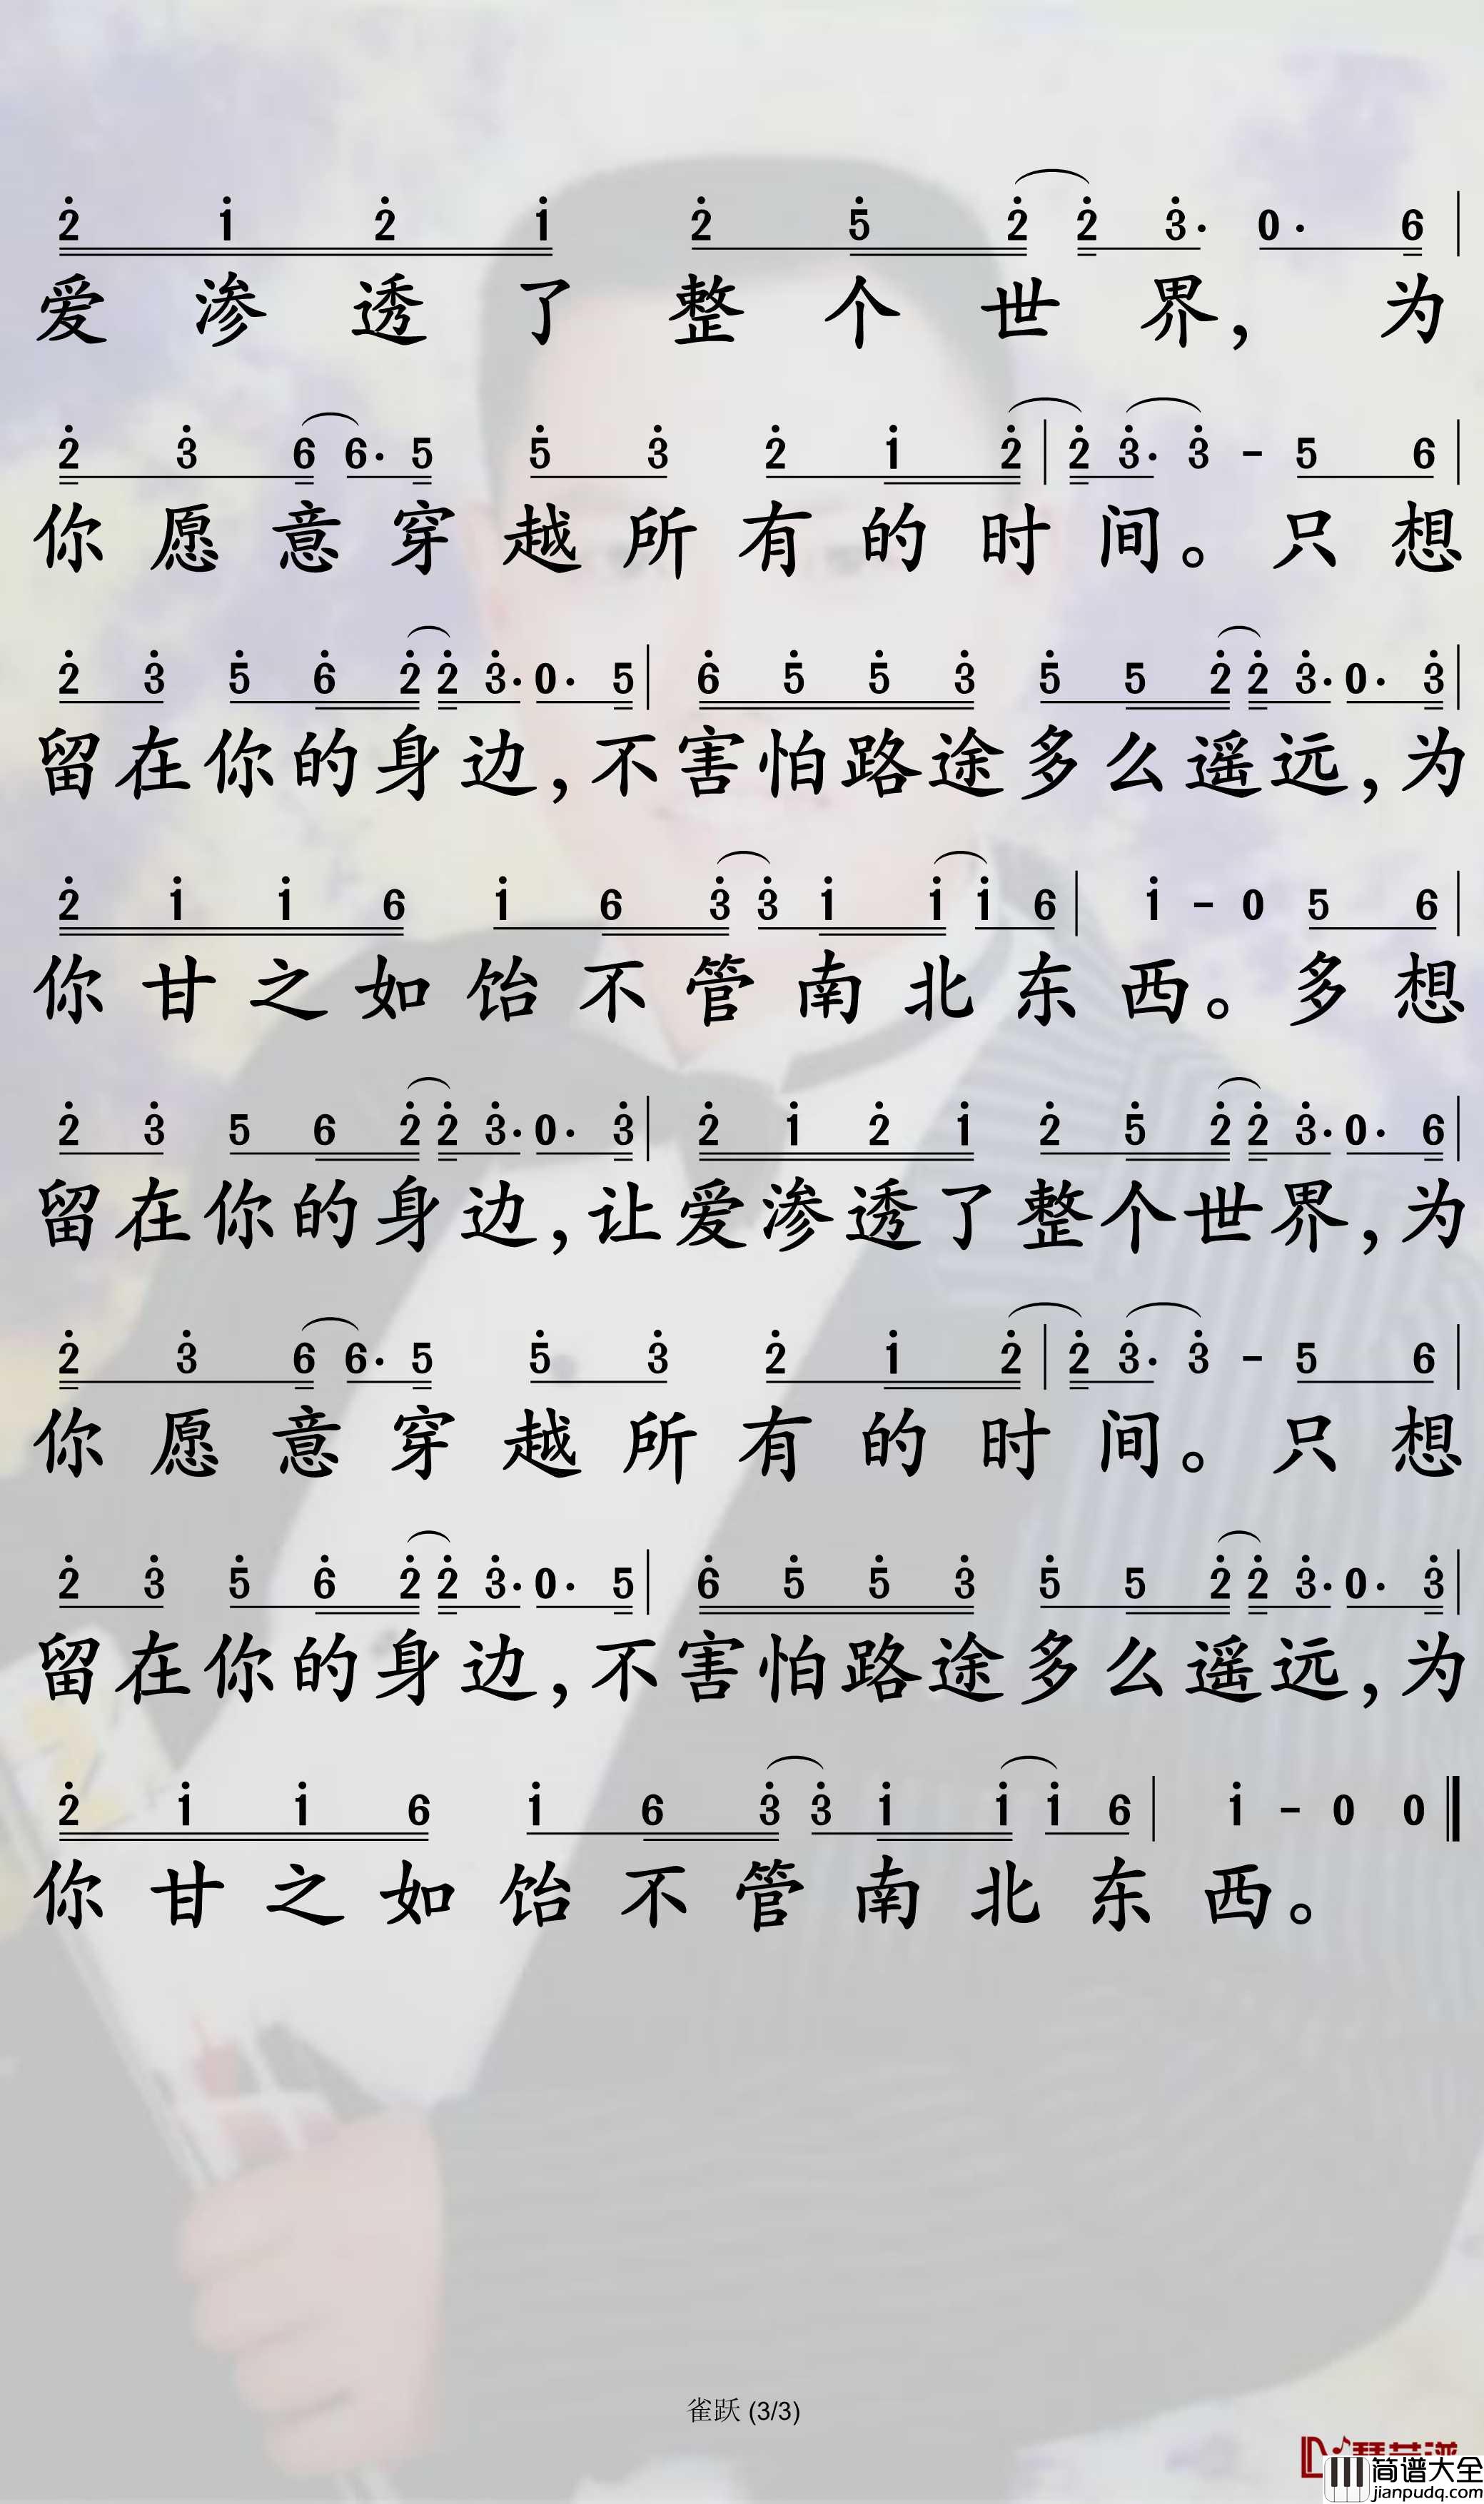 2̇ 1̇ 2̇ 1̇ 2̇ 5̇ 2̇ 2̇ 3̇· 0· 6 |
爱渗透了整个世界，为
2̇ 3̇ 6 6· 5̇ 5̇ 3̇ 2̇ 1̇ 2̇ | 2̇ 3̇· 3̇ - 5 6 |
你愿意穿越所有的时间。只想
2̇ 3̇ 5̇ 6̇ 2̇ 2̇ 3̇· 0· 5 | 6̇ 5̇ 5̇ 3̇ 5̇ 5 2̇ 2̇ 3̇· 0· 3̇ |
留在你的身边，不害怕路途多么遥远，为
2̇ 1̇ 1̇ 6 1̇ 6 3̇ 3̇ 1̇ 1̇ 1̇ 6 | 1̇ - 0 5 6 |
你甘之如饴不管南北东西。多想
2̇ 3̇ 5 6 2̇ 2̇ 3̇· 0· 3̇ | 2̇ 1̇ 2̇ 1̇ 2̇ 5̇ 2̇ 2̇ 3̇· 0· 6 |
留在你的身边，让爱渗透了整个世界，为
2̇ 3̇ 6 6· 5̇ 5̇ 3̇ 2̇ 1̇ 2̇ | 2̇ 3̇· 3̇ - 5 6 |
你愿意穿越所有的时间。只想
2̇ 3̇ 5̇ 6̇ 2̇ 2̇ 3̇· 0· 5 | 6̇ 5̇ 5̇ 3̇ 5̇ 5 2̇ 2̇ 3̇· 0· 3̇ |
留在你的身边，不害怕路途多么遥远，为
2̇ 1̇ 1̇ 6 1̇ 6 3̇ 3̇ 1̇ 1̇ 1̇ 6 | 1̇ - 0 0 ‖
你甘之如饴不管南北东西。
雀跃 (3/3)
简谱大全
jianpudq.com